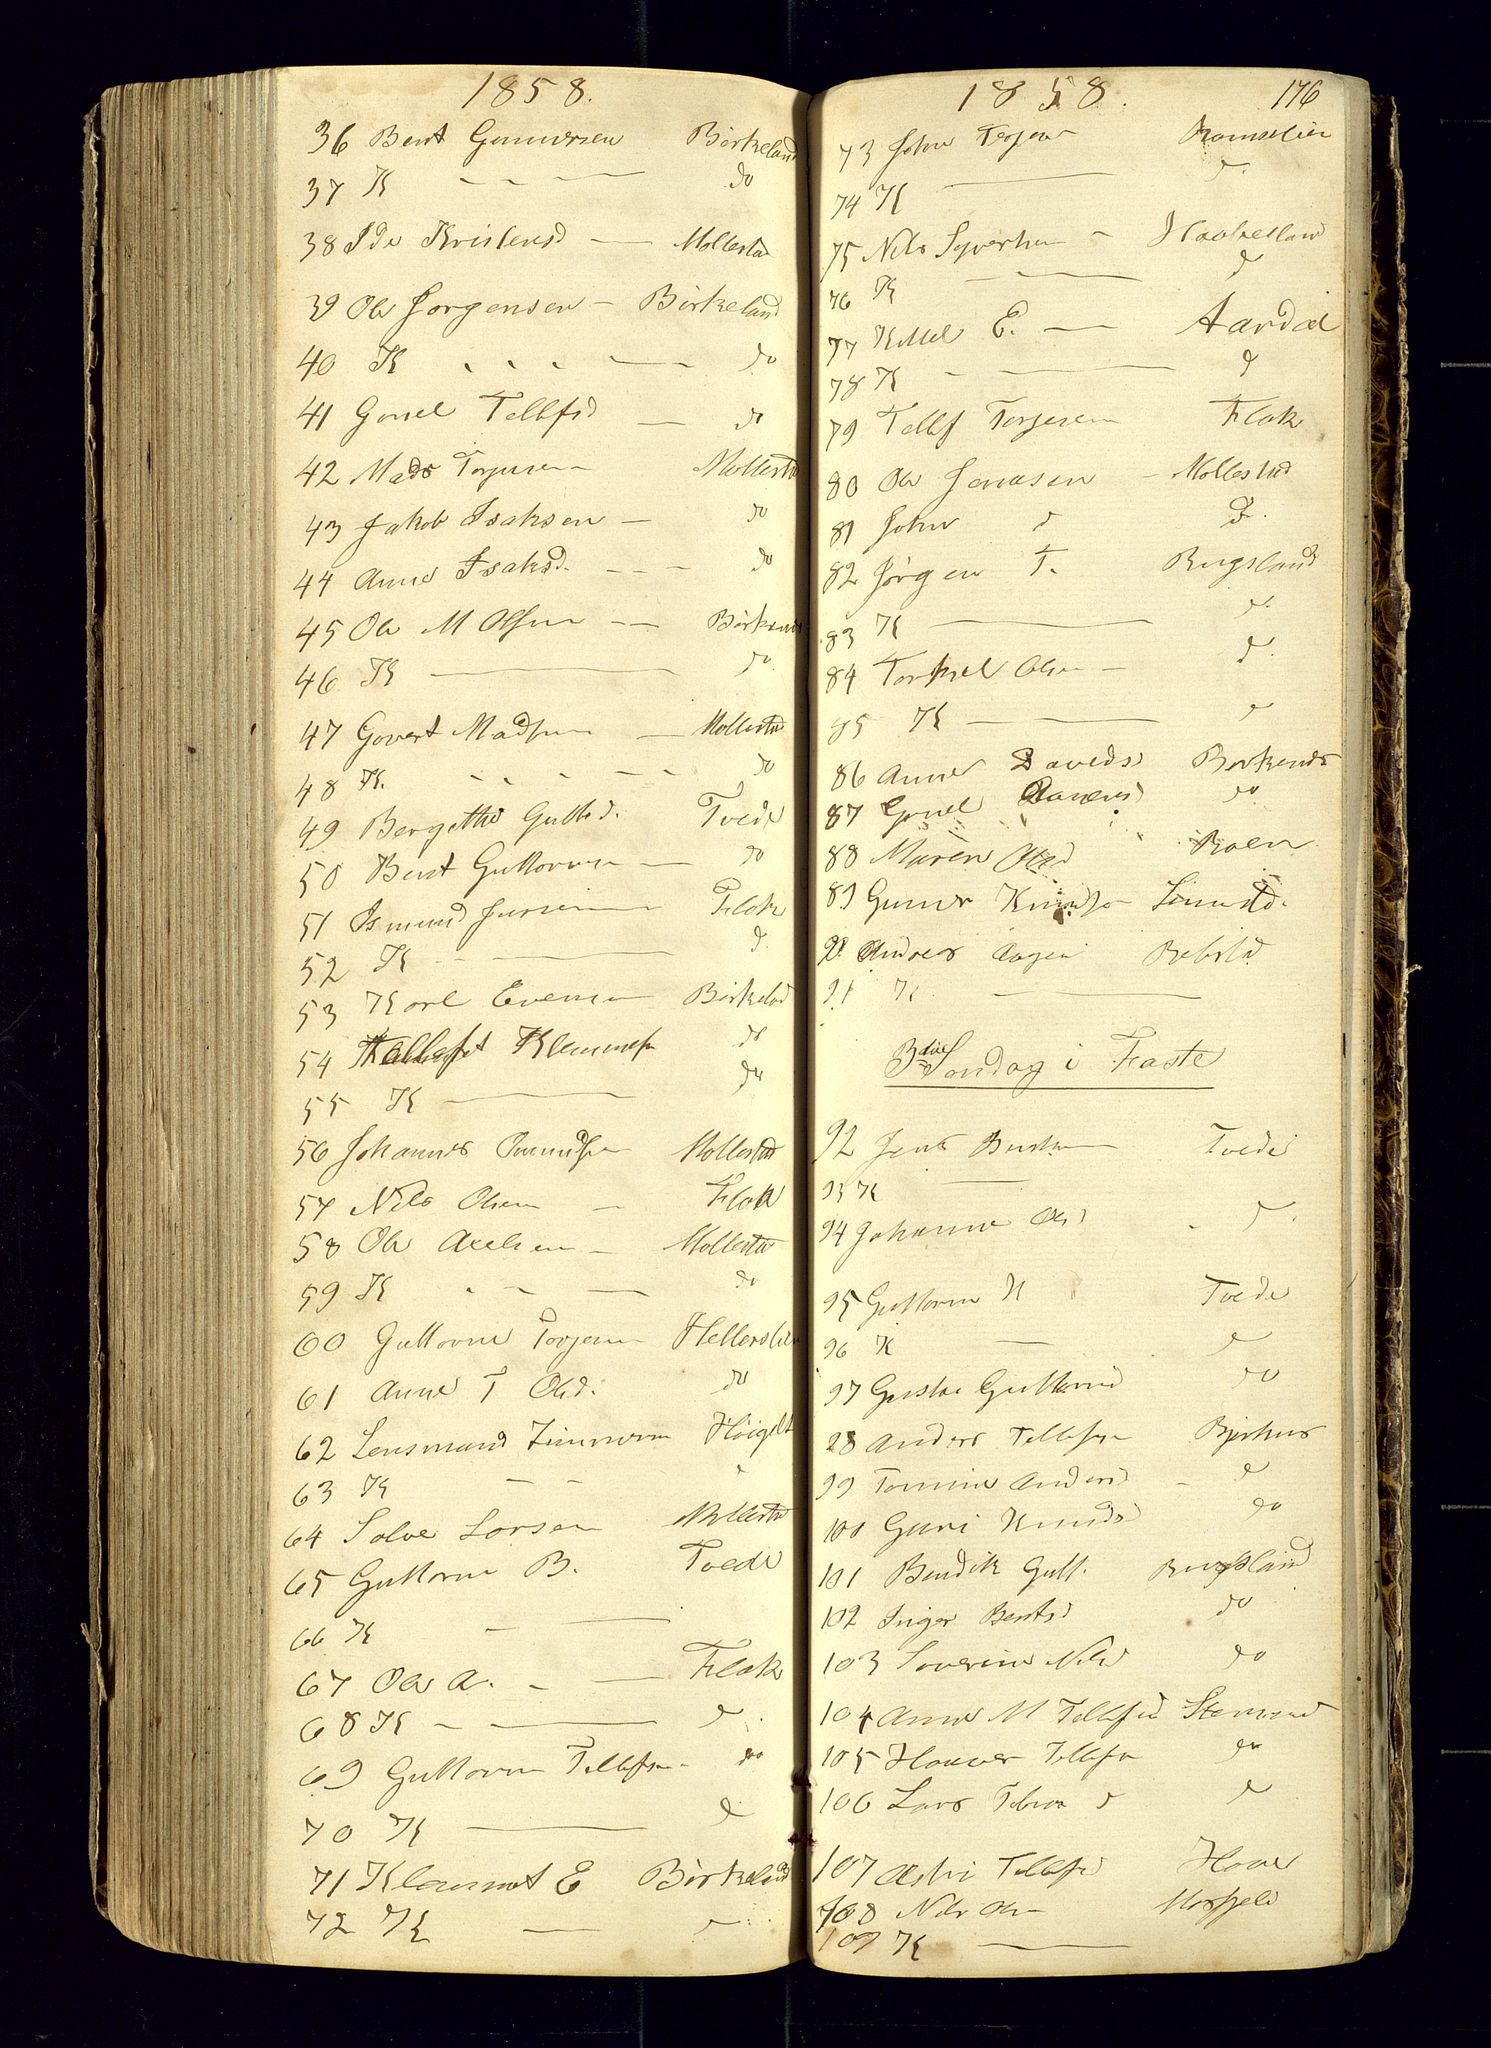 1858.
36 Bent Gunnersen Birkeland
37 K - - - do
38 Ide Kristensd — Mollestad
39 Ole Jorgensen - Birkeland
40 K - - - do
41 Gonel Tellefsd — do
42 Mads Torjusen Mollestad
43 Jakob Isaksen — do
44 Anne Isaksd. - - - do
45 Ole M Olsen - — Birkenes
46 K — do
47 Govert Madsen — Mollestad
48 K. - - - - - do
49 Bergethe Guttd. Tvede
50 Bent Guttormsen — do
51 Asmund Flak
52 K - — d.
53 Karl Evensen Birkelad
54 Klemmets do
55 K — do
56 Johannes Mollestad
57 Nils Olsen — Flak
58 Ole Axelsen — Mollestad
59 K - - — do
60 Guttorm Torjesen Hellerslien
61 Anne T Olsd. do
62 Lensmand Høigelt
63 K - -
64 Solve Larsen Mollestad
65 Guttorm B. Tvede
66 K - —
67 Ole A. - — Flak
68 K - — d.
69 Guttorm Tellefsen do
70 K — d
71 Klemmet E Birkeland
72 K —
1858. 176
73 John Terjesen Ramselien
74 K — d.
75 Nils Syvertsen - Haabesland
76 K - — d
77 Kittel E. — Aardal
78 K - — d
79 Tellef Torjesen Flak
80 Ole Jensen - Mollestad
81 John d d.
82 Jørgen T. Rugsland
83 K — d.
84 Torkel Olsen — d.
85 K — d
86 Anne Davidsd Berkenes
87 Gonel do
88 Maren Olsd Roen
89 Gunner Knudsen
90 Andreas Aagen
91 K —
3die Søndag i Faste
92 Jens Tvede
93 K —
94 Johanne Olsd - d.
95 Guttorm K Tvede
96 K — d
97 Guttormsd do
98 Anders Tellefsen Bjrknes
99 Tomine Andersd - d
100 Guri Knudsd do
101 Bendik Gutt. Rugsland
102 Inger Bentsd do
103 Severine Nilsd do
104 Anne M Tellefsd
105 Haaver Tellefsen do
106 Lars d
107 Tellefsd
108 Nils Olsen Mosfjeld
109 K —